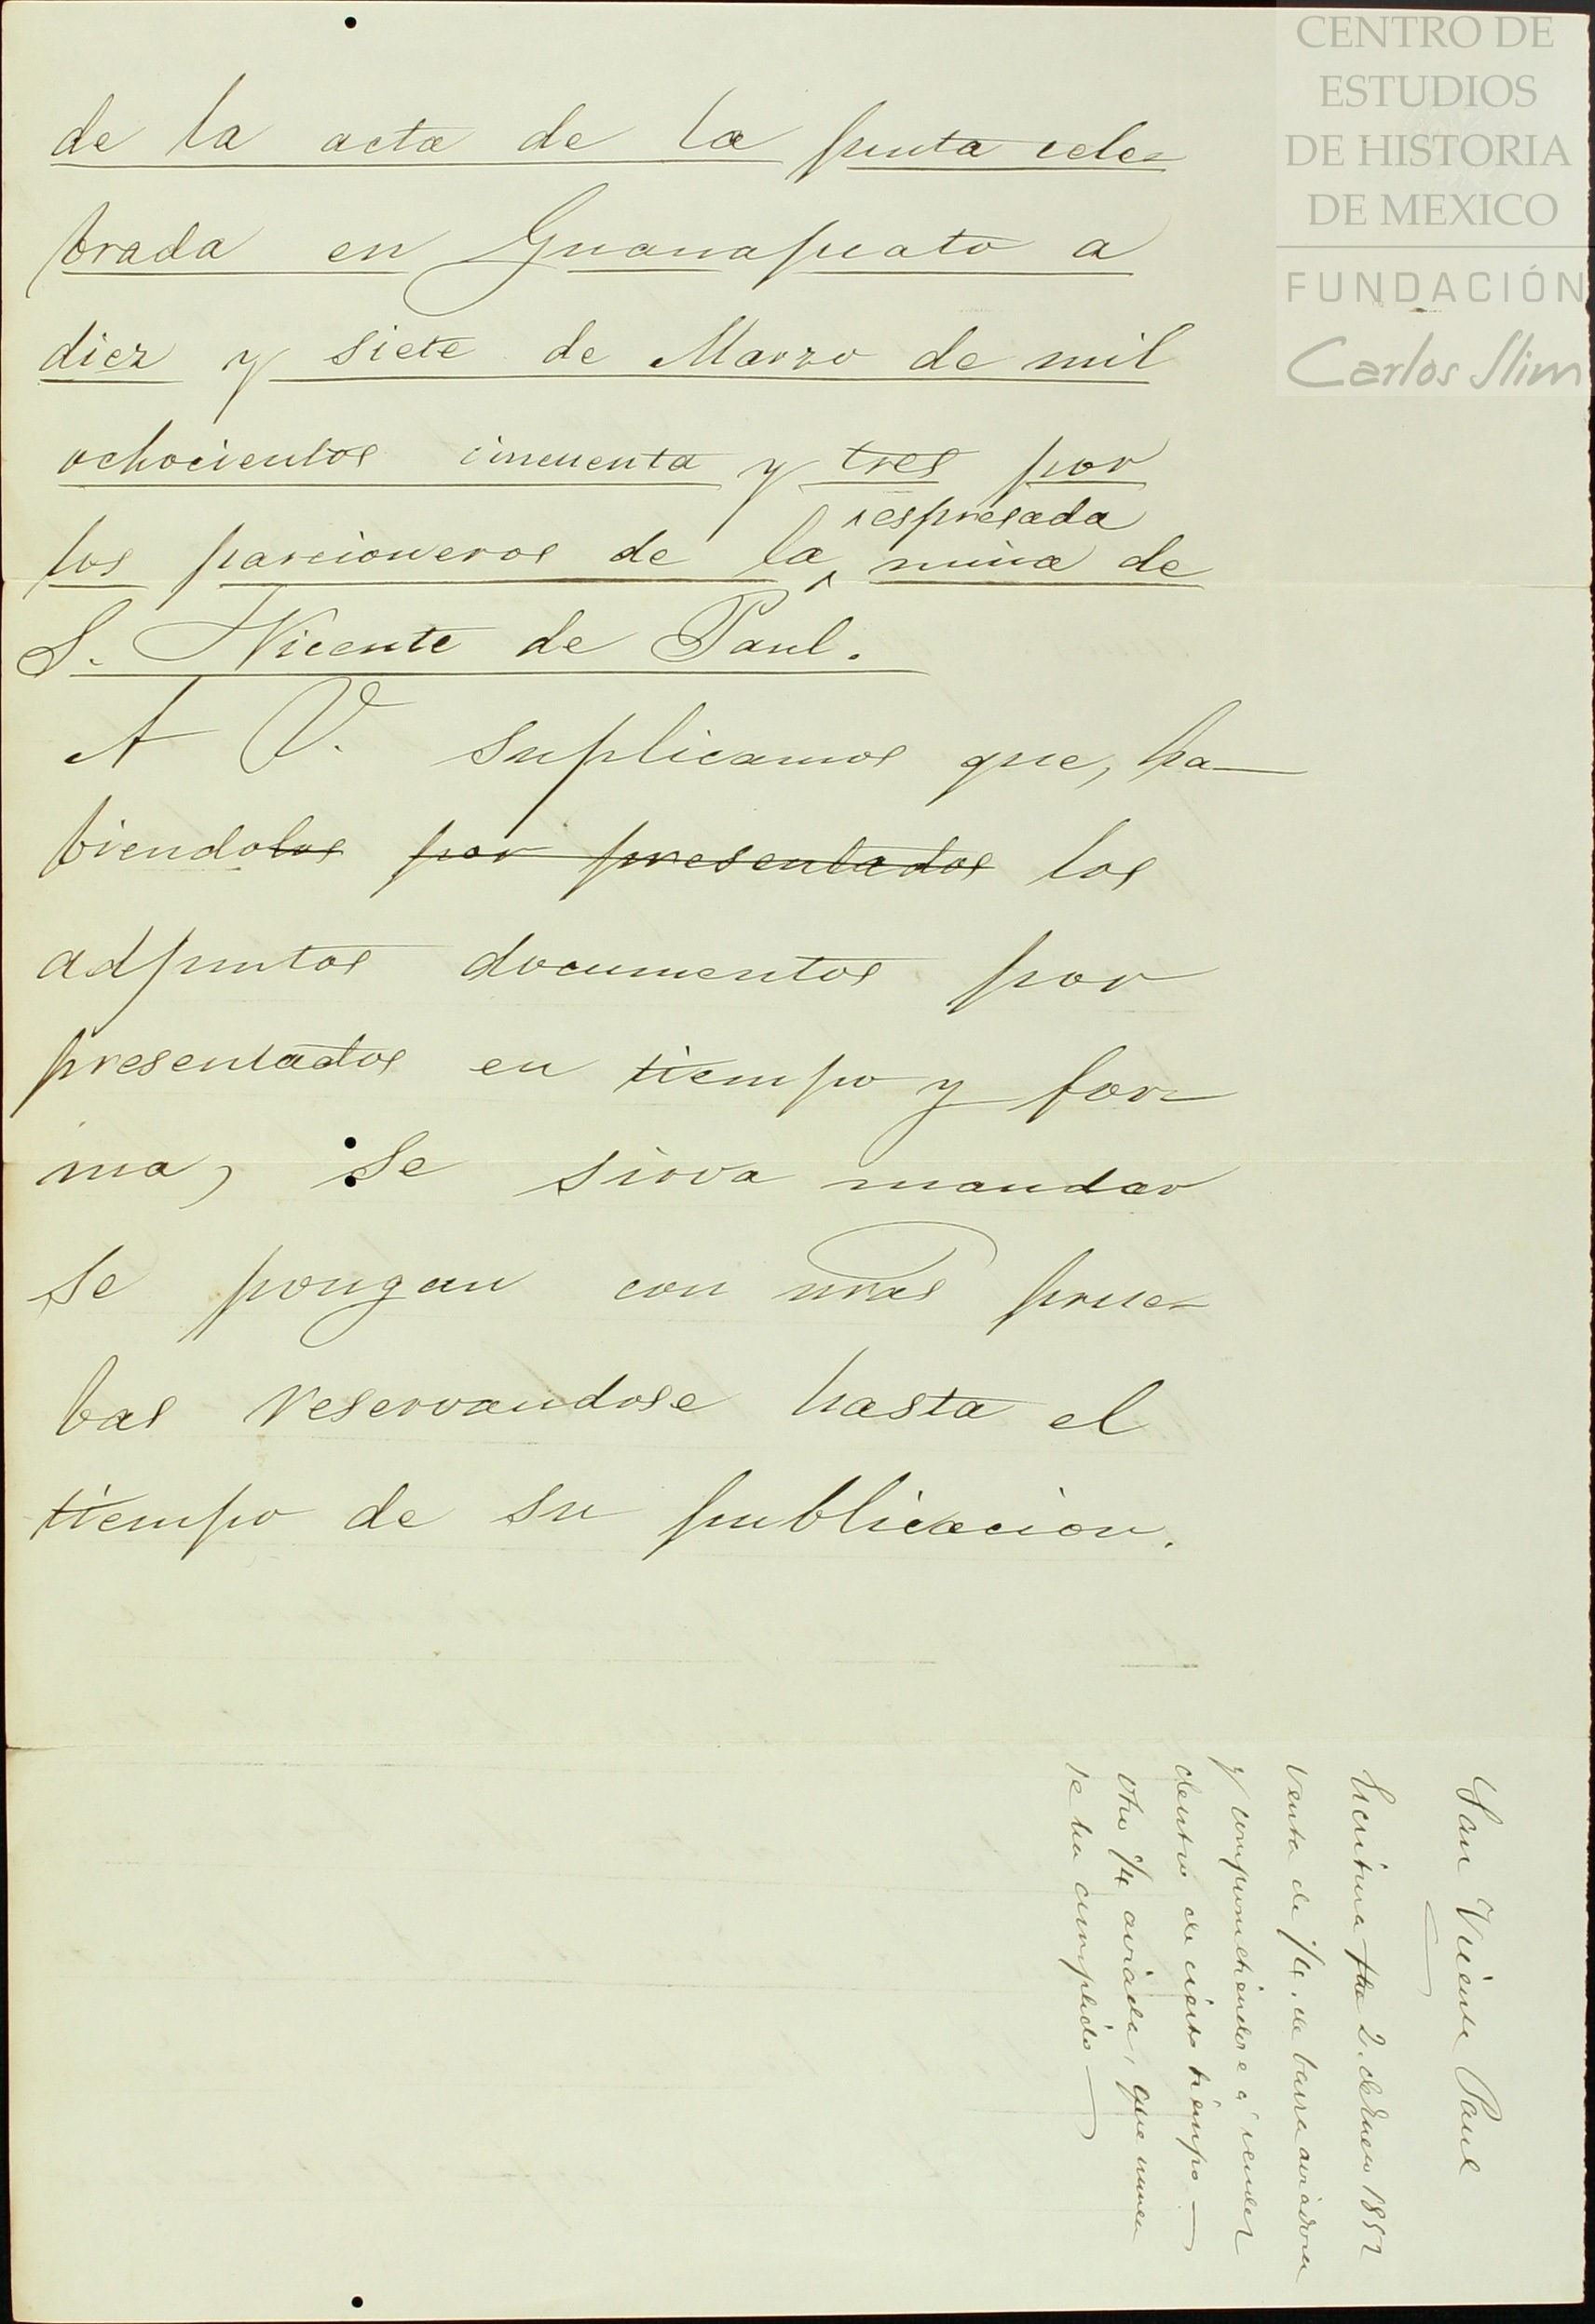 CENTRO DE
ESTUDIOS
DE HISTORIA
DE MEXICO
FUNDACIÓN
Carlos Slim
de la acta de la junta cele-
brada en Guanajuato a
diez y siete de Marzo de mil
ochocientos cincuenta y tres por
espresada
los parcioneros de la mina de
S. Vicente de Paul.
A V. suplicamos que, ha-
biendolos por presentados los
adjuntos documentos por
presentados en tiempo y for-
ma, se sirva mandar
se pongan con nras prue-
bas reservandose hasta el
tiempo de su publicacion.
San Vicente Paul
Escritura fha 2. de Enero 1852
venta de 1/4. de barra aviadora
y comprometiendose á vender
dentro de cierto tiempo —
otro 1/4 aviada, que nunca
se ha cumplido —